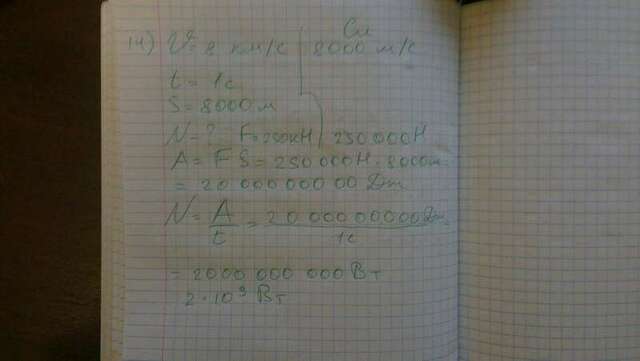 Си
14) V = 8 км/с 8000 м/с
t = 1с
S = 8000 м
N = ? F = 250кН 250 000 Н
A = F S = 250 000 Н · 8000м =
= 20 000 000 00 Дж
N = A/t = 20 000 000 00 Дж/1с =
= 2000 000 000 Вт
2 · 10⁹ Вт